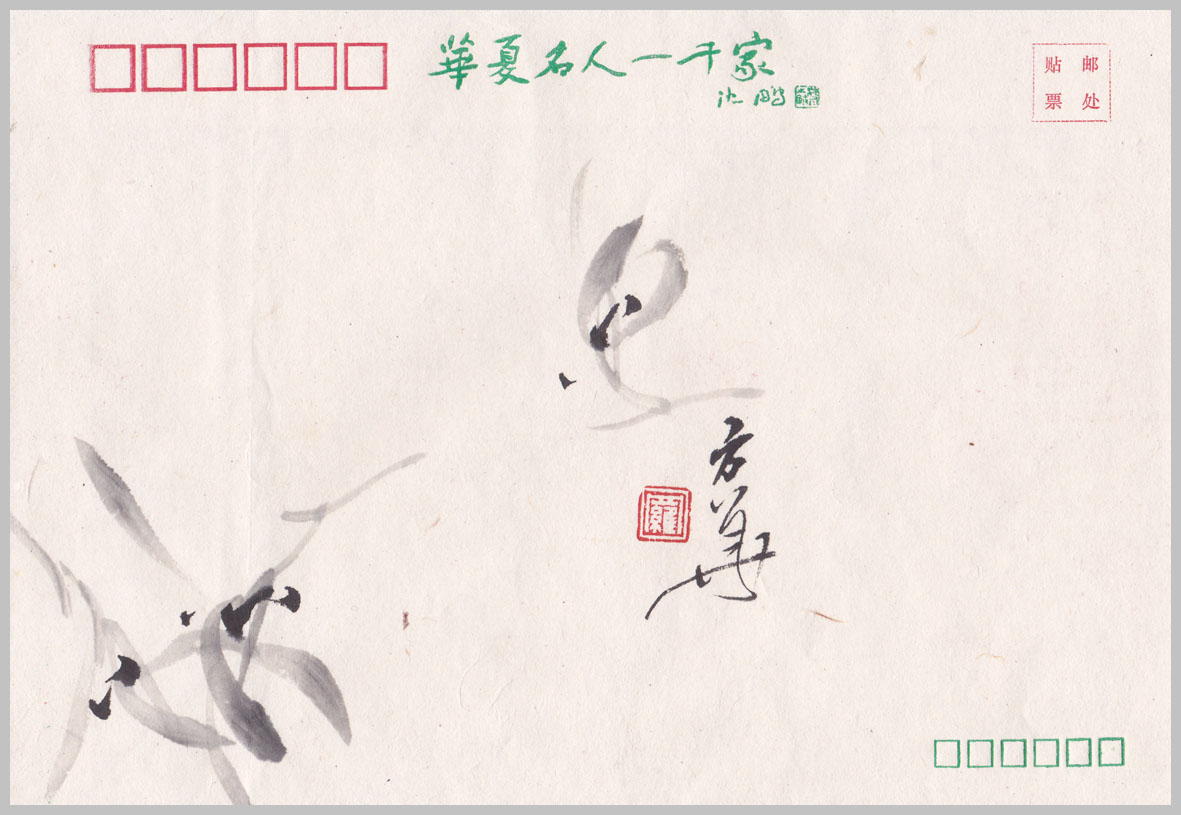 華夏名人一千家
沈鵬
贴邮
票处
方華